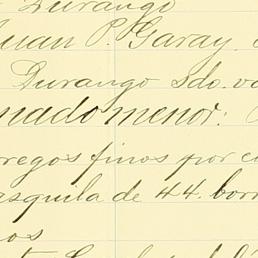 Durango
Juan P. Garay.
Durango Sdo. va
nado menor:
regos finos por c
asquila de 44. borr
os